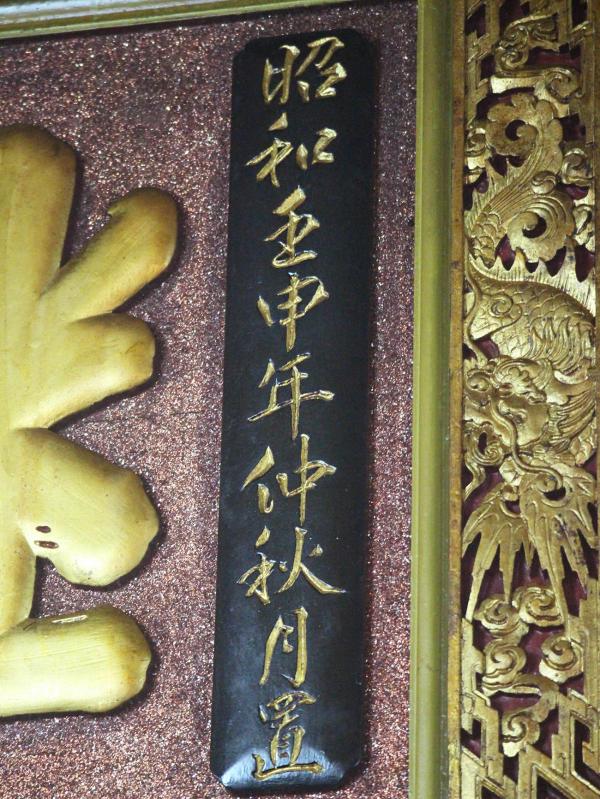 昭和壬申年仲秋月置